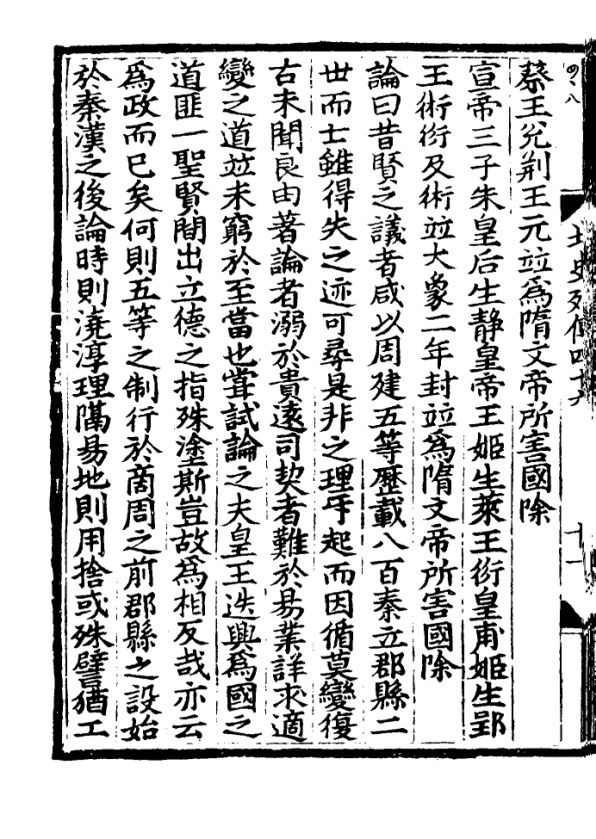 蔡王兊荆王元竝爲隋文帝所害國除
宣帝三子朱皇后生静皇帝王姬生萊王衍皇甫姬生郢
王術衍及術竝大象二年封竝爲隋文帝所害國除
論曰昔賢之議者咸以周建五等歷載八百秦立郡縣二
世而士雖得失之迹可尋是非之理乎起而因循莫變復
古未聞良由著論者溺於貴遠司契者難於易業詳求適
變之道竝未窮於至當也嘗試論之夫皇王迭興爲國之
道匪一聖賢閒出立德之指殊塗斯豈故爲相反哉亦云
爲政而已矣何則五等之制行於商周之前郡縣之設始
於秦漢之後論時則澆淳理隔易地則用捨或殊譬猶工